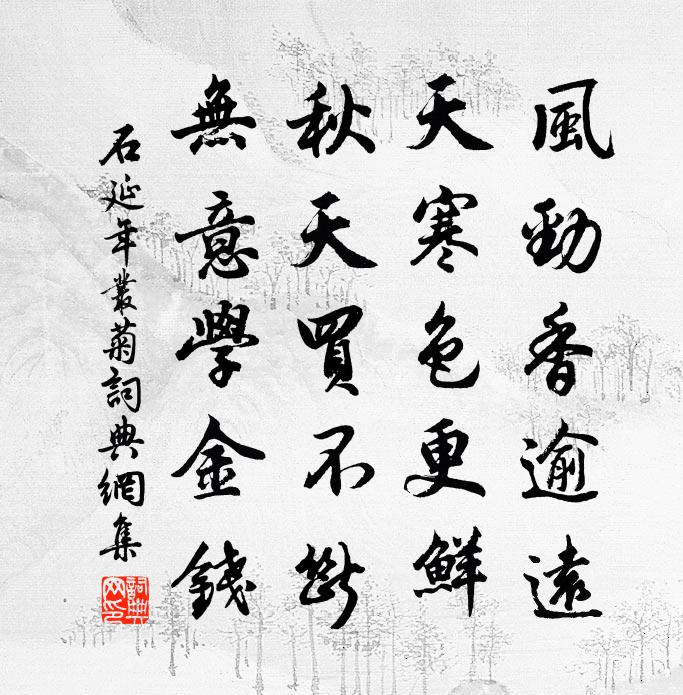 風勁香逾遠
天寒色更鮮
秋天買不斷
無意學金錢
石延年叢菊詞典網集
詞典網印